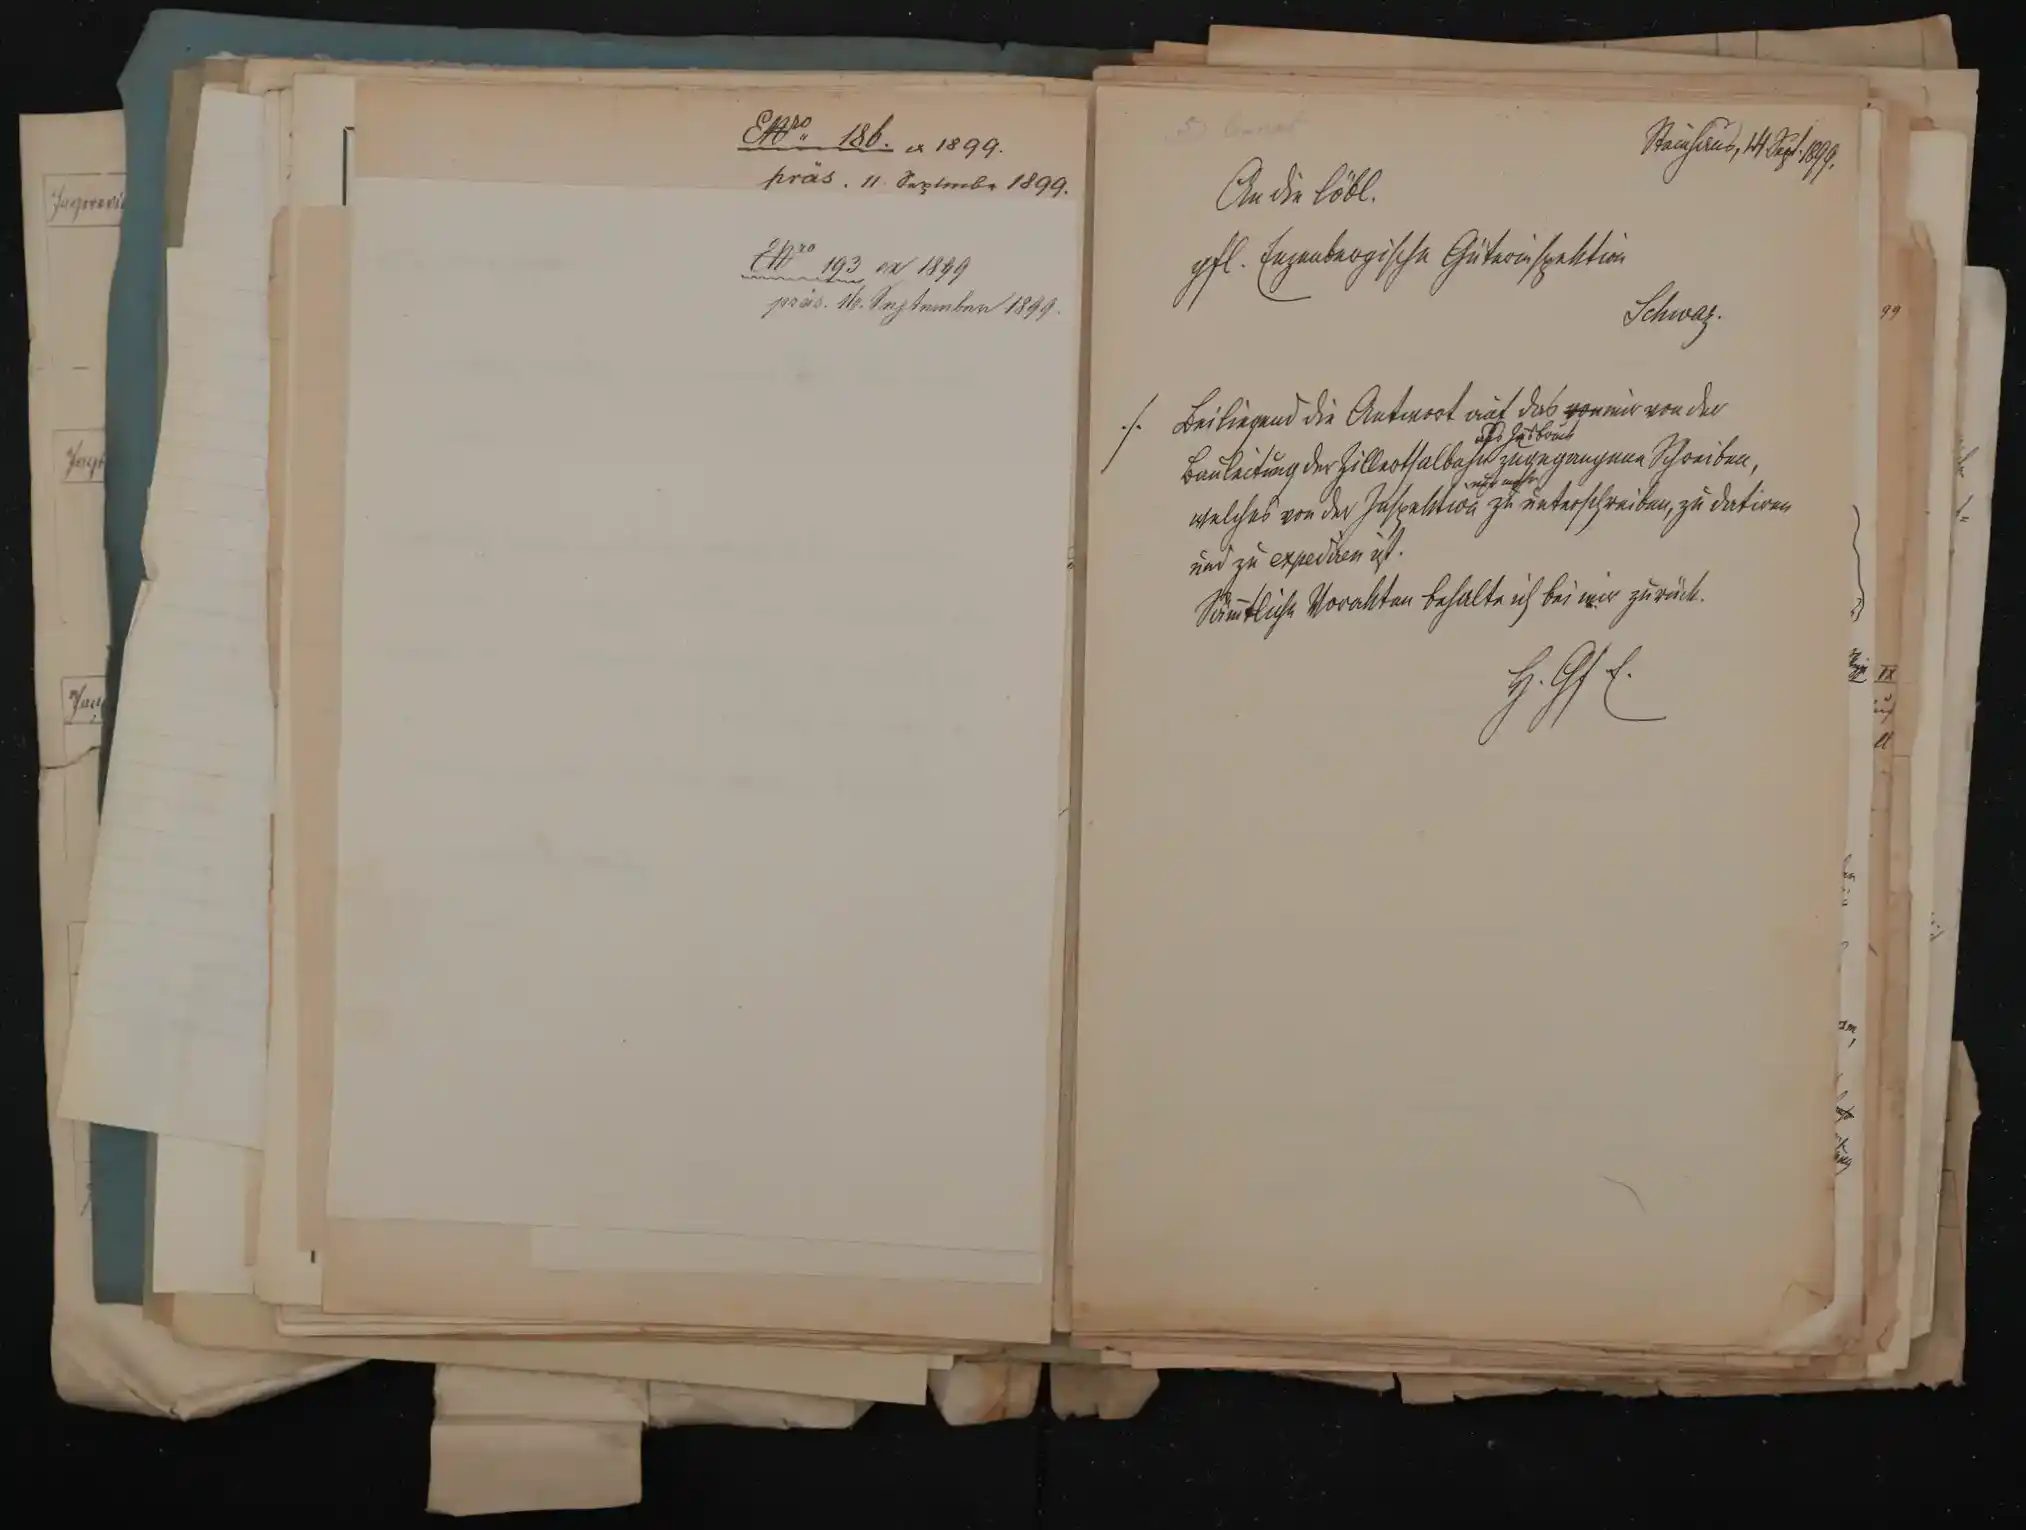 ENro 186. ex 1899.
präs. 11. September 1899.
ENro 193 ex 1899
präs. 16. September 1899.
Steinhaus, 14 Sept. 1899.
An die löbl.
gfl. Enzenbergische Güterinspektion
Schwaz.
./. Beiliegend die Antwort auf das von mir von der
aus Jnsbruck
Bauleitung der Zillerthalbahn zugegangene Schreiben,
nunmehr
welches von der Inspektion zu unterschreiben, zu datiren
und zu expediren ist.
Sämtliche Vorakten behalte ich bei mir zurück.
H. Gf E.